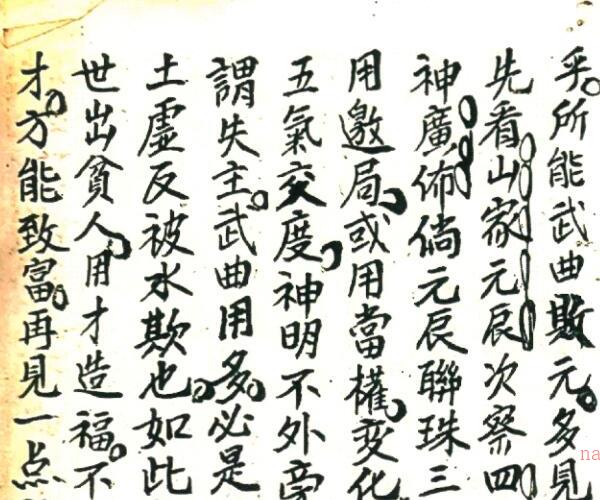 乎。所能武曲敗元。多見
先看山家元辰次察四
神廣佈倘元辰聯珠三
用邀局。或用當權。變化
五氣交度。神明不外
謂失主。武曲用多。必是
土虛反被水欺也。如此
世出貧人。用才造福。不
才。方能致富。再見一点
na